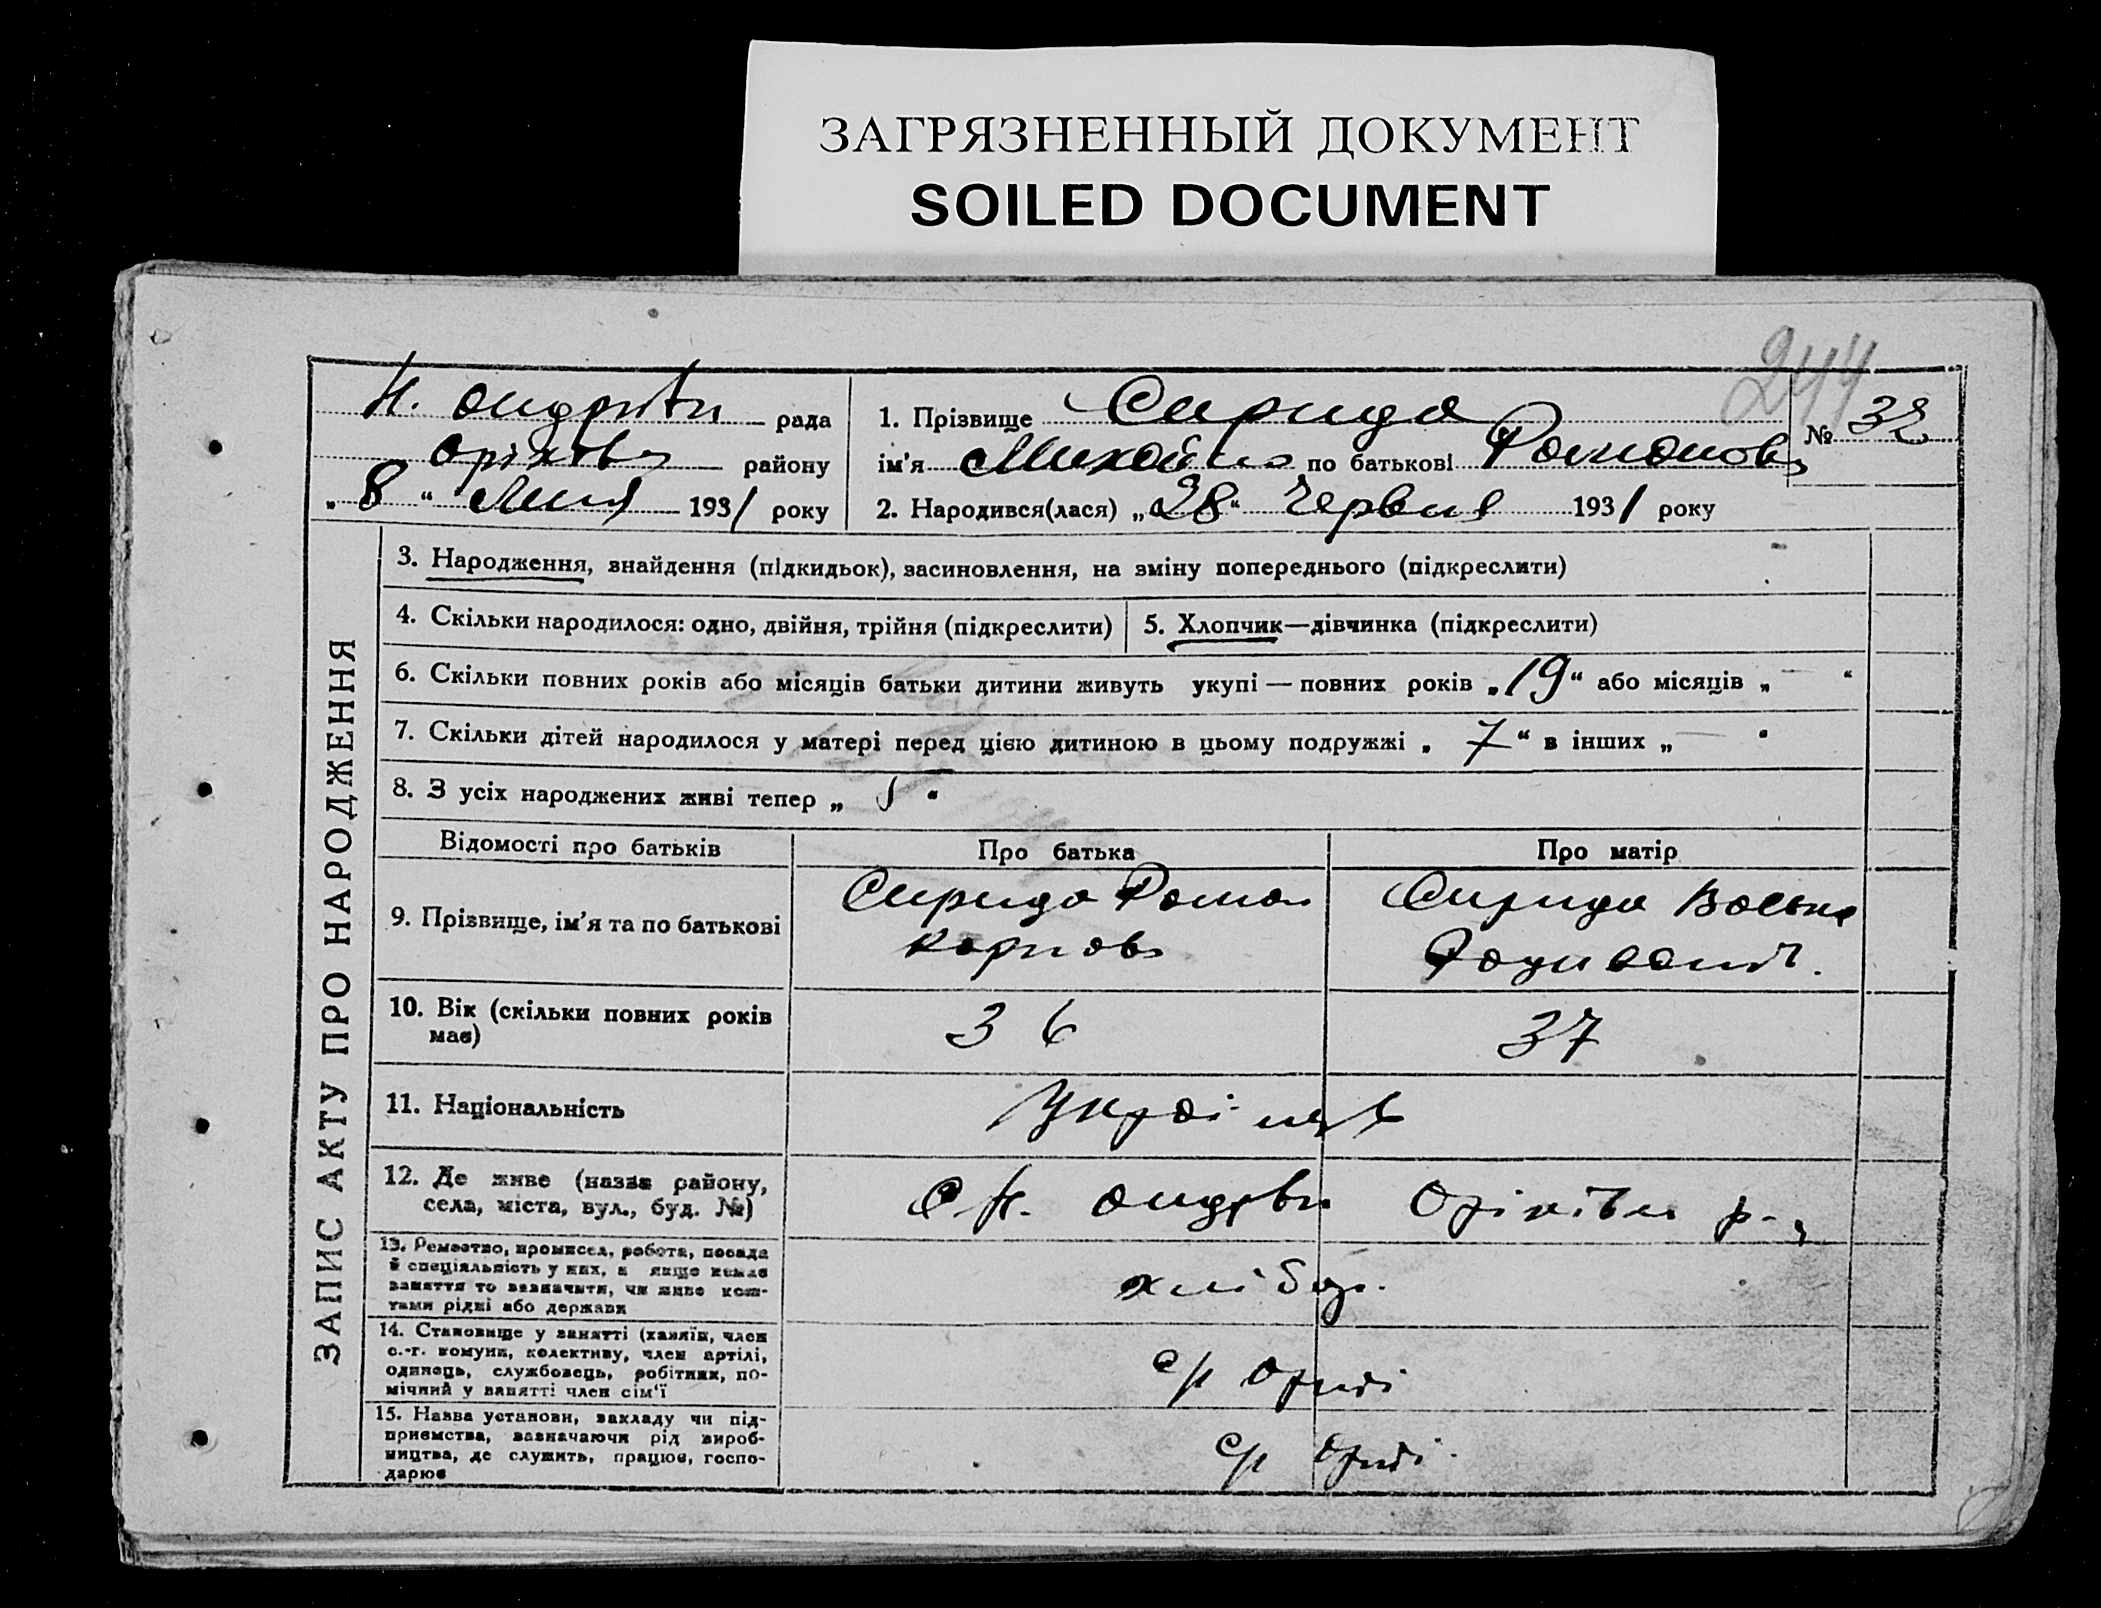 ЗАГРЯЗНЕННЫЙ ДОКУМЕНТ
SOILED DOCUMENT
244
Н. рада
Оріхов району
„ 8 “ 1931 року
1. Прізвище Сирида
№ 32
ім'я Михайло по батькові Романов
2. Народився(лася) „28“ Червня 1931 року
ЗАПИС АКТУ ПРО НАРОДЖЕННЯ
3. Народження, знайдення (підкидьок), засиновлення, на зміну попереднього (підкреслити)
4. Скільки народилося: одно, двійня, трійня (підкреслити)
5. Хлопчик—дівчинка (підкреслити)
6. Скільки повних років або місяців батьки дитини живуть укупі — повних років „19“ або місяців „ — “
7. Скільки дітей народилося у матері перед цією дитиною в цьому подружжі „ 7 “ в інших „ — “
8. З усіх народжених живі тепер „ “
Відомості про батьків
Про батька
Про матір
9. Прізвище, ім'я та по батькові
Сирида Роман
Карпов
Сирида
10. Вік (скільки повних років має)
36
37
11. Національність
12. Де живе (назва району,
села, міста, вул., буд. №)
13. Ремество, промисел, робота, посада
й спеціяльність у них, а якщо немає
заняття то зазначити, чи живе кош-
тами рідні або держави
хлібор.
14. Становище у занятті (хазяїн, член
с.-г. комуни, колективу, член артілі,
одинець, службовець, робітник, по-
мічний у занятті член сім'ї
с/г Артілі
15. Назва установи, закладу чи під-
приємства, зазначаючи рід вироб-
ництва, де служить, працює, госпо-
дарює
с/г Артілі